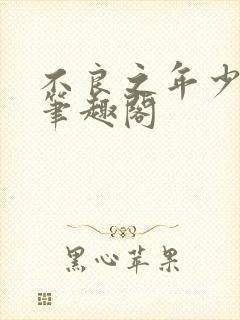 不良之年少
筆趣閣
黑心苹果